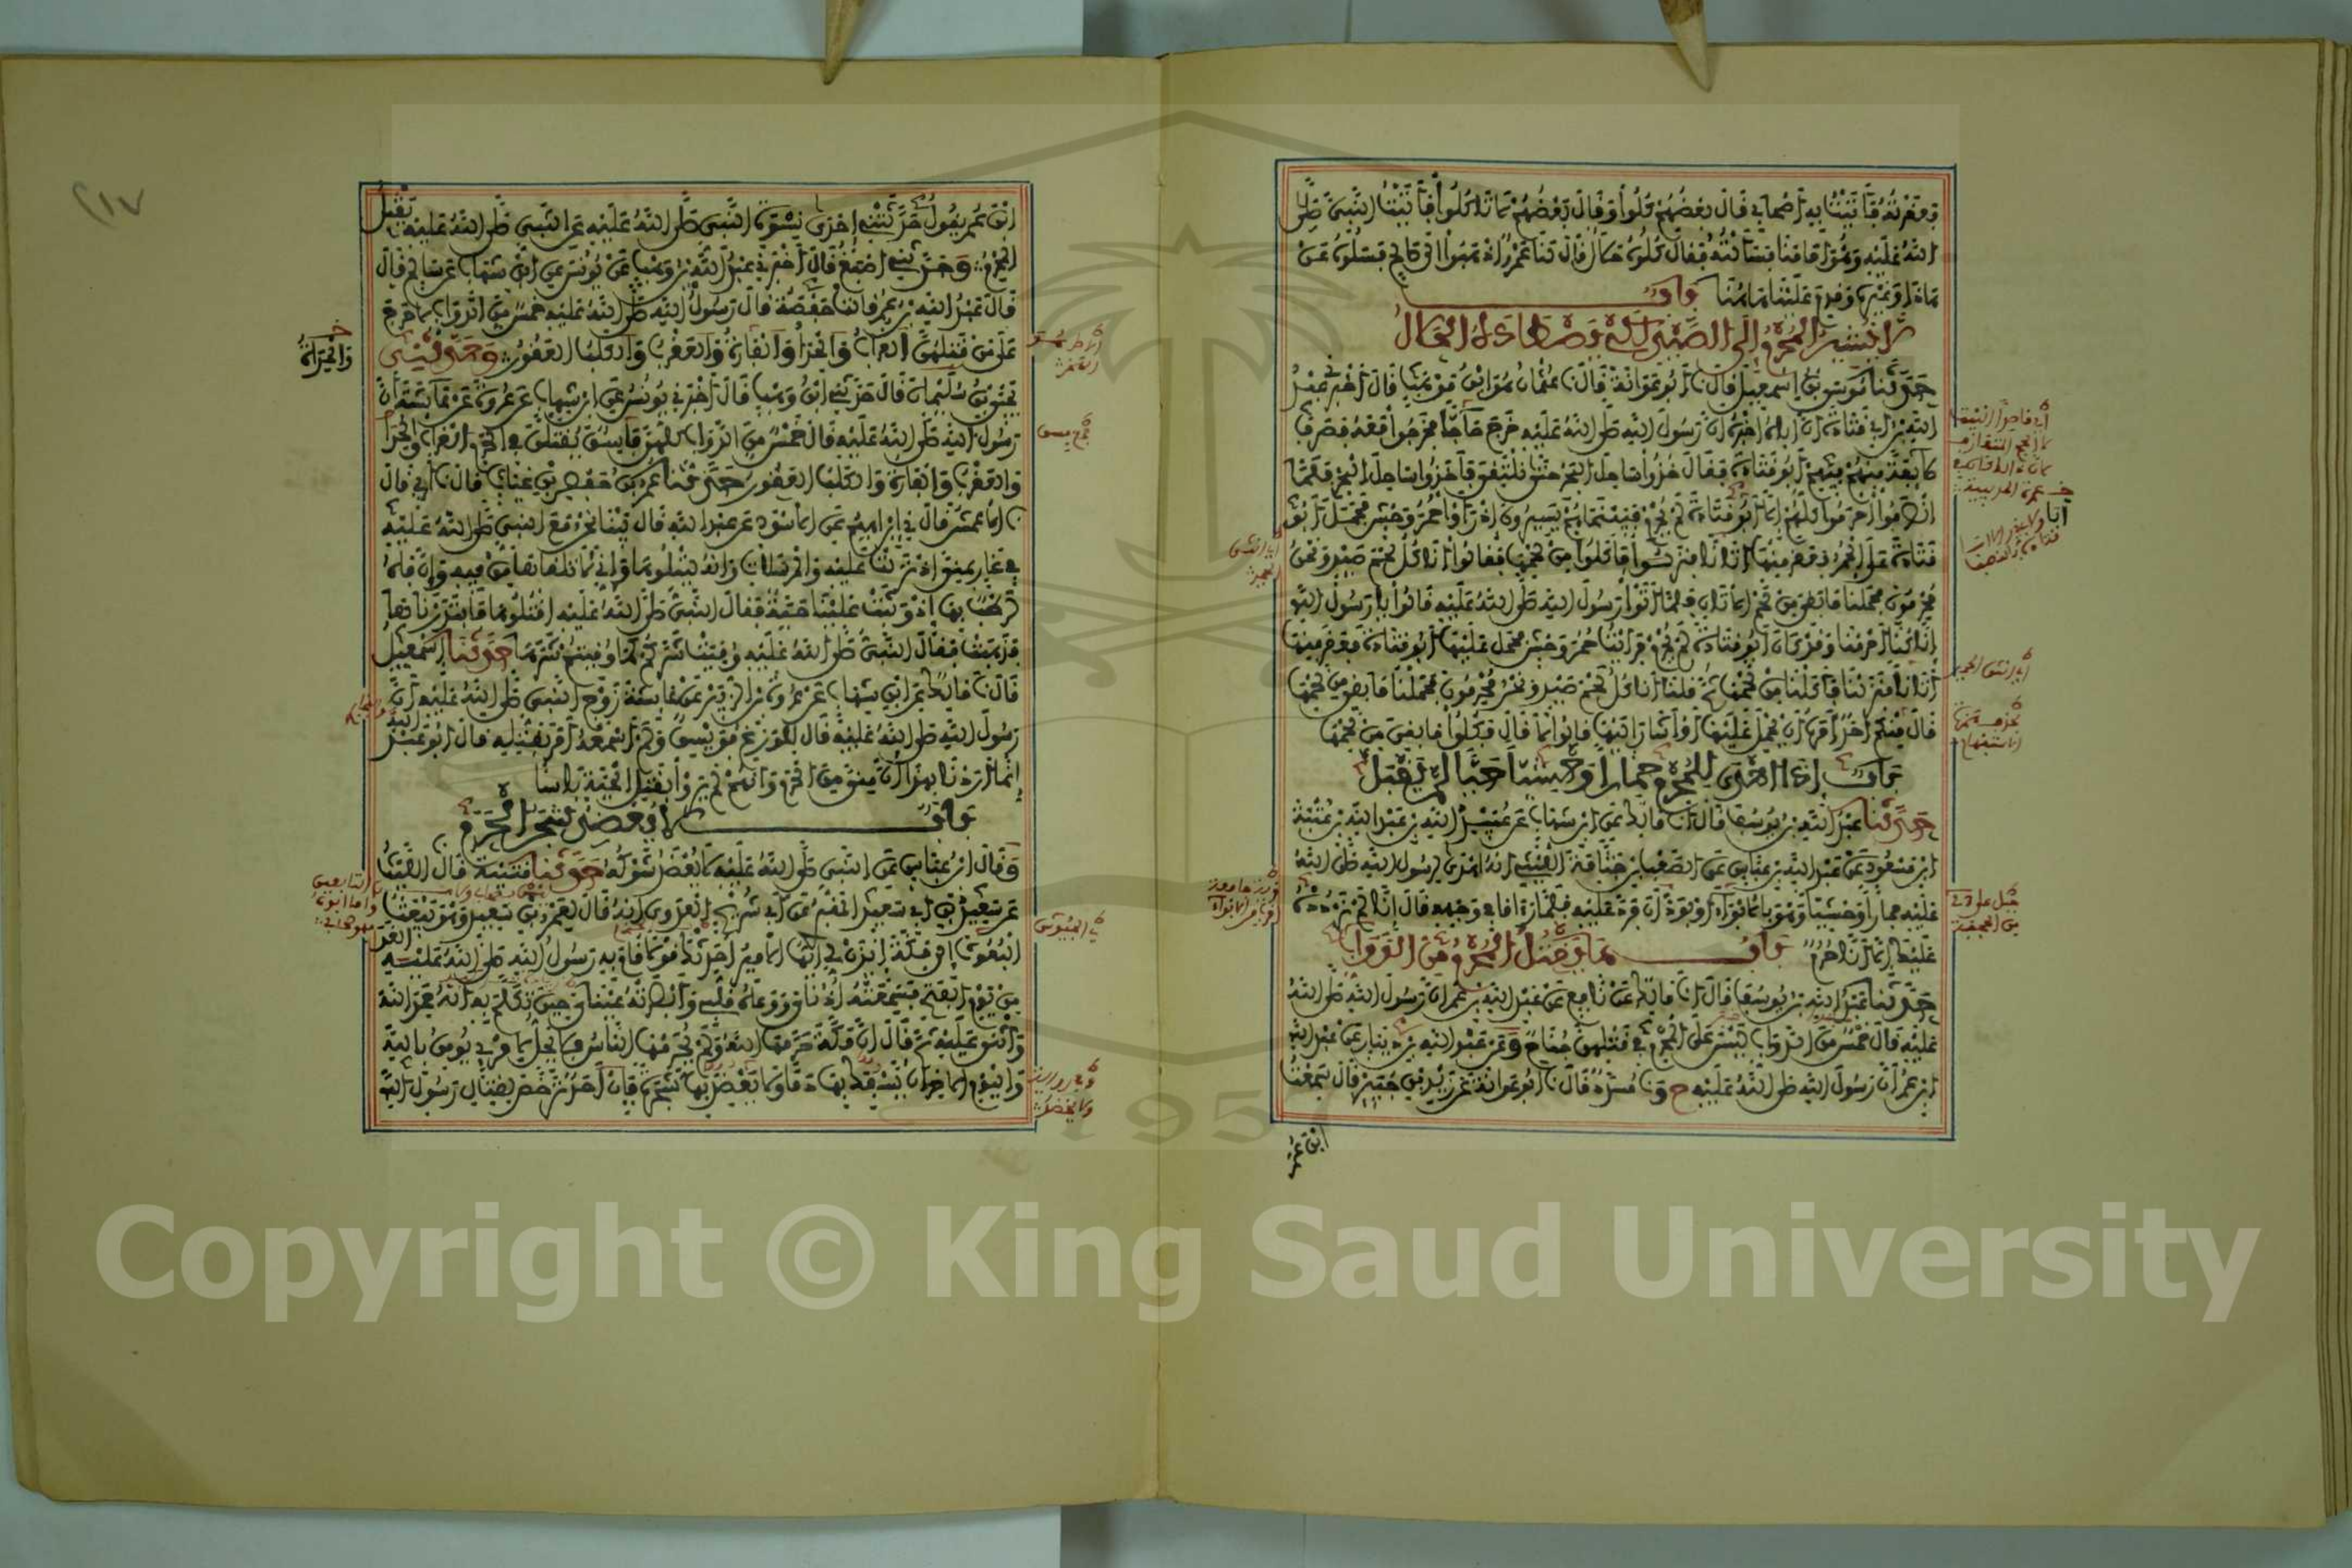 فعقرته فأتيت به أصحابي فقال بعضهم كلوا وقال بعضهم لا تأكلوا فأتيت النبي صلى
الله عليه وهو أمامنا فسألته فقال كلوه حلال قال لنا عمرو اذهبوا إلى صالح فسلوه عن
هذا وغيره وقدم علينا هاهنا باب
لا يشير المحرم إلى الصيد لكي يصطاده الحلال
حدثنا موسى بن إسمعيل قال نا أبو عوانة قال نا عثمان هو ابن موهب قال أخبرني عبد
الله بن أبي قتادة أن أباه أخبره أن رسول الله صلى الله عليه خرج حاجا فخرجوا معه فصرف
طائفة منهم فيهم أبو قتادة فقال خذوا ساحل البحر حتى نلتقي فأخذوا ساحل البحر فلما
انصرفوا أحرموا كلهم إلا أبو قتادة لم يحرم فبينما هم يسيرون إذ رأوا حمر وحش فحمل أبو
قتادة على الحمر فعقر منها أتانا فنزلوا فأكلوا من لحمها فقالوا أنأكل لحم صيد ونحن
محرمون فحملنا ما بقي من لحم الأتان فلما أتوا رسول الله صلى الله عليه قالوا يا رسول الله
إنا كنا أحرمنا وقد كان أبو قتادة لم يحرم فرأينا حمر وحش فحمل عليها أبو قتادة فعقر منها
أتانا فنزلنا فأكلنا من لحمها ثم قلنا أنأكل لحم صيد ونحن محرمون فحملنا ما بقي من لحمها
قال منكم أحد أمره أن يحمل عليها أو أشار إليها قالوا لا قال فكلوا ما بقي من لحمها
باب إذا أهدى للمحرم حمارا وحشيا حيا لم يقبل
حدثنا عبد الله بن يوسف قال أنا مالك عن ابن شهاب عن عبيد الله بن عبد الله بن عتبة
ابن مسعود عن عبد الله بن عباس عن الصعب بن جثامة الليثي أنه أهدى لرسول الله صلى الله
عليه حمارا وحشيا وهو بالأبواء أو بودان فرده عليه فلما رأى ما في وجهه قال إنا لم نرده
عليك إلا أنا حرم باب ما يقتل المحرم من الدواب
حدثنا عبد الله بن يوسف قال أنا مالك عن نافع عن عبد الله بن عمر أن رسول الله صلى الله
عليه قال خمس من الدواب ليس على المحرم في قتلهن جناح وعن عبد الله بن دينار عن عبد الله
ابن عمر أن رسول الله صلى الله عليه ح ونا مسدد قال نا أبو عوانة عن زيد بن جبير قال سمعت
ابن عمر
ابن عمر يقول حدثتني إحدى نسوة النبي صلى الله عليه عن النبي صلى الله عليه يقتل
المحرم وحدثني أصبغ قال أخبرني عبد الله بن وهب عن يونس عن ابن شهاب عن سالم قال
قال عبد الله بن عمر قالت حفصة قال رسول الله صلى الله عليه خمس من الدواب لا حرج
على من قتلهن الغراب والحدأ والفأرة والعقرب والكلب العقور وحدثني
والحدأة
يحيى بن سليمان قال حدثني ابن وهب قال أخبرني يونس عن ابن شهاب عن عروة عن عائشة أن
رسول الله صلى الله عليه قال خمس من الدواب كلهن فاسق يقتلن في الحرم الغراب والحدأ
والعقرب والفأرة والكلب العقور حدثنا عمر بن حفص بن غياث قال نا أبي قال
نا الأعمش قال ني إبراهيم عن الأسود عن عبد الله قال بينا نحن مع النبي صلى الله عليه
في غار بمنى إذ نزلت عليه والمرسلات وإنه ليتلوها وإني لأتلقاها من فيه وإن فاه
لرطب بها إذ وثبت علينا حية فقال النبي صلى الله عليه اقتلوها فابتدرناها
فذهبت فقال النبي صلى الله عليه وقيت شركم كما وقيتم شرها حدثنا إسمعيل
قال نا مالك عن ابن شهاب عن عروة بن الزبير عن عائشة زوج النبي صلى الله عليه أن
رسول الله صلى الله عليه قال للوزغ فويسق ولم أسمعه أمر بقتله قال أبو عبد الله
إنما أردنا بهذا أن منى من الحرم وأنهم لم يروا بقتل الحية بأسا
باب لا يعضد شجر الحرم
وقال ابن عباس عن النبي صلى الله عليه لا يعضد شوكه حدثنا قتيبة قال نا الليث
عن سعيد بن أبي سعيد المقبري عن أبي شريح العدوي أنه قال لعمرو بن سعيد وهو يبعث
البعوث إلى مكة ائذن لي أيها الأمير أحدثك قولا قام به رسول الله صلى الله عليه الغد
من يوم الفتح فسمعته أذناي ووعاه قلبي وأبصرته عيناي حين تكلم به أنه حمد الله
وأثنى عليه ثم قال إن مكة حرمها الله ولم يحرمها الناس فلا يحل لامرئ يؤمن بالله
واليوم الآخر أن يسفك بها دما ولا يعضد بها شجرة فإن أحد ترخص لقتال رسول الله
٢١٧
Copyright © King Saud University
1957